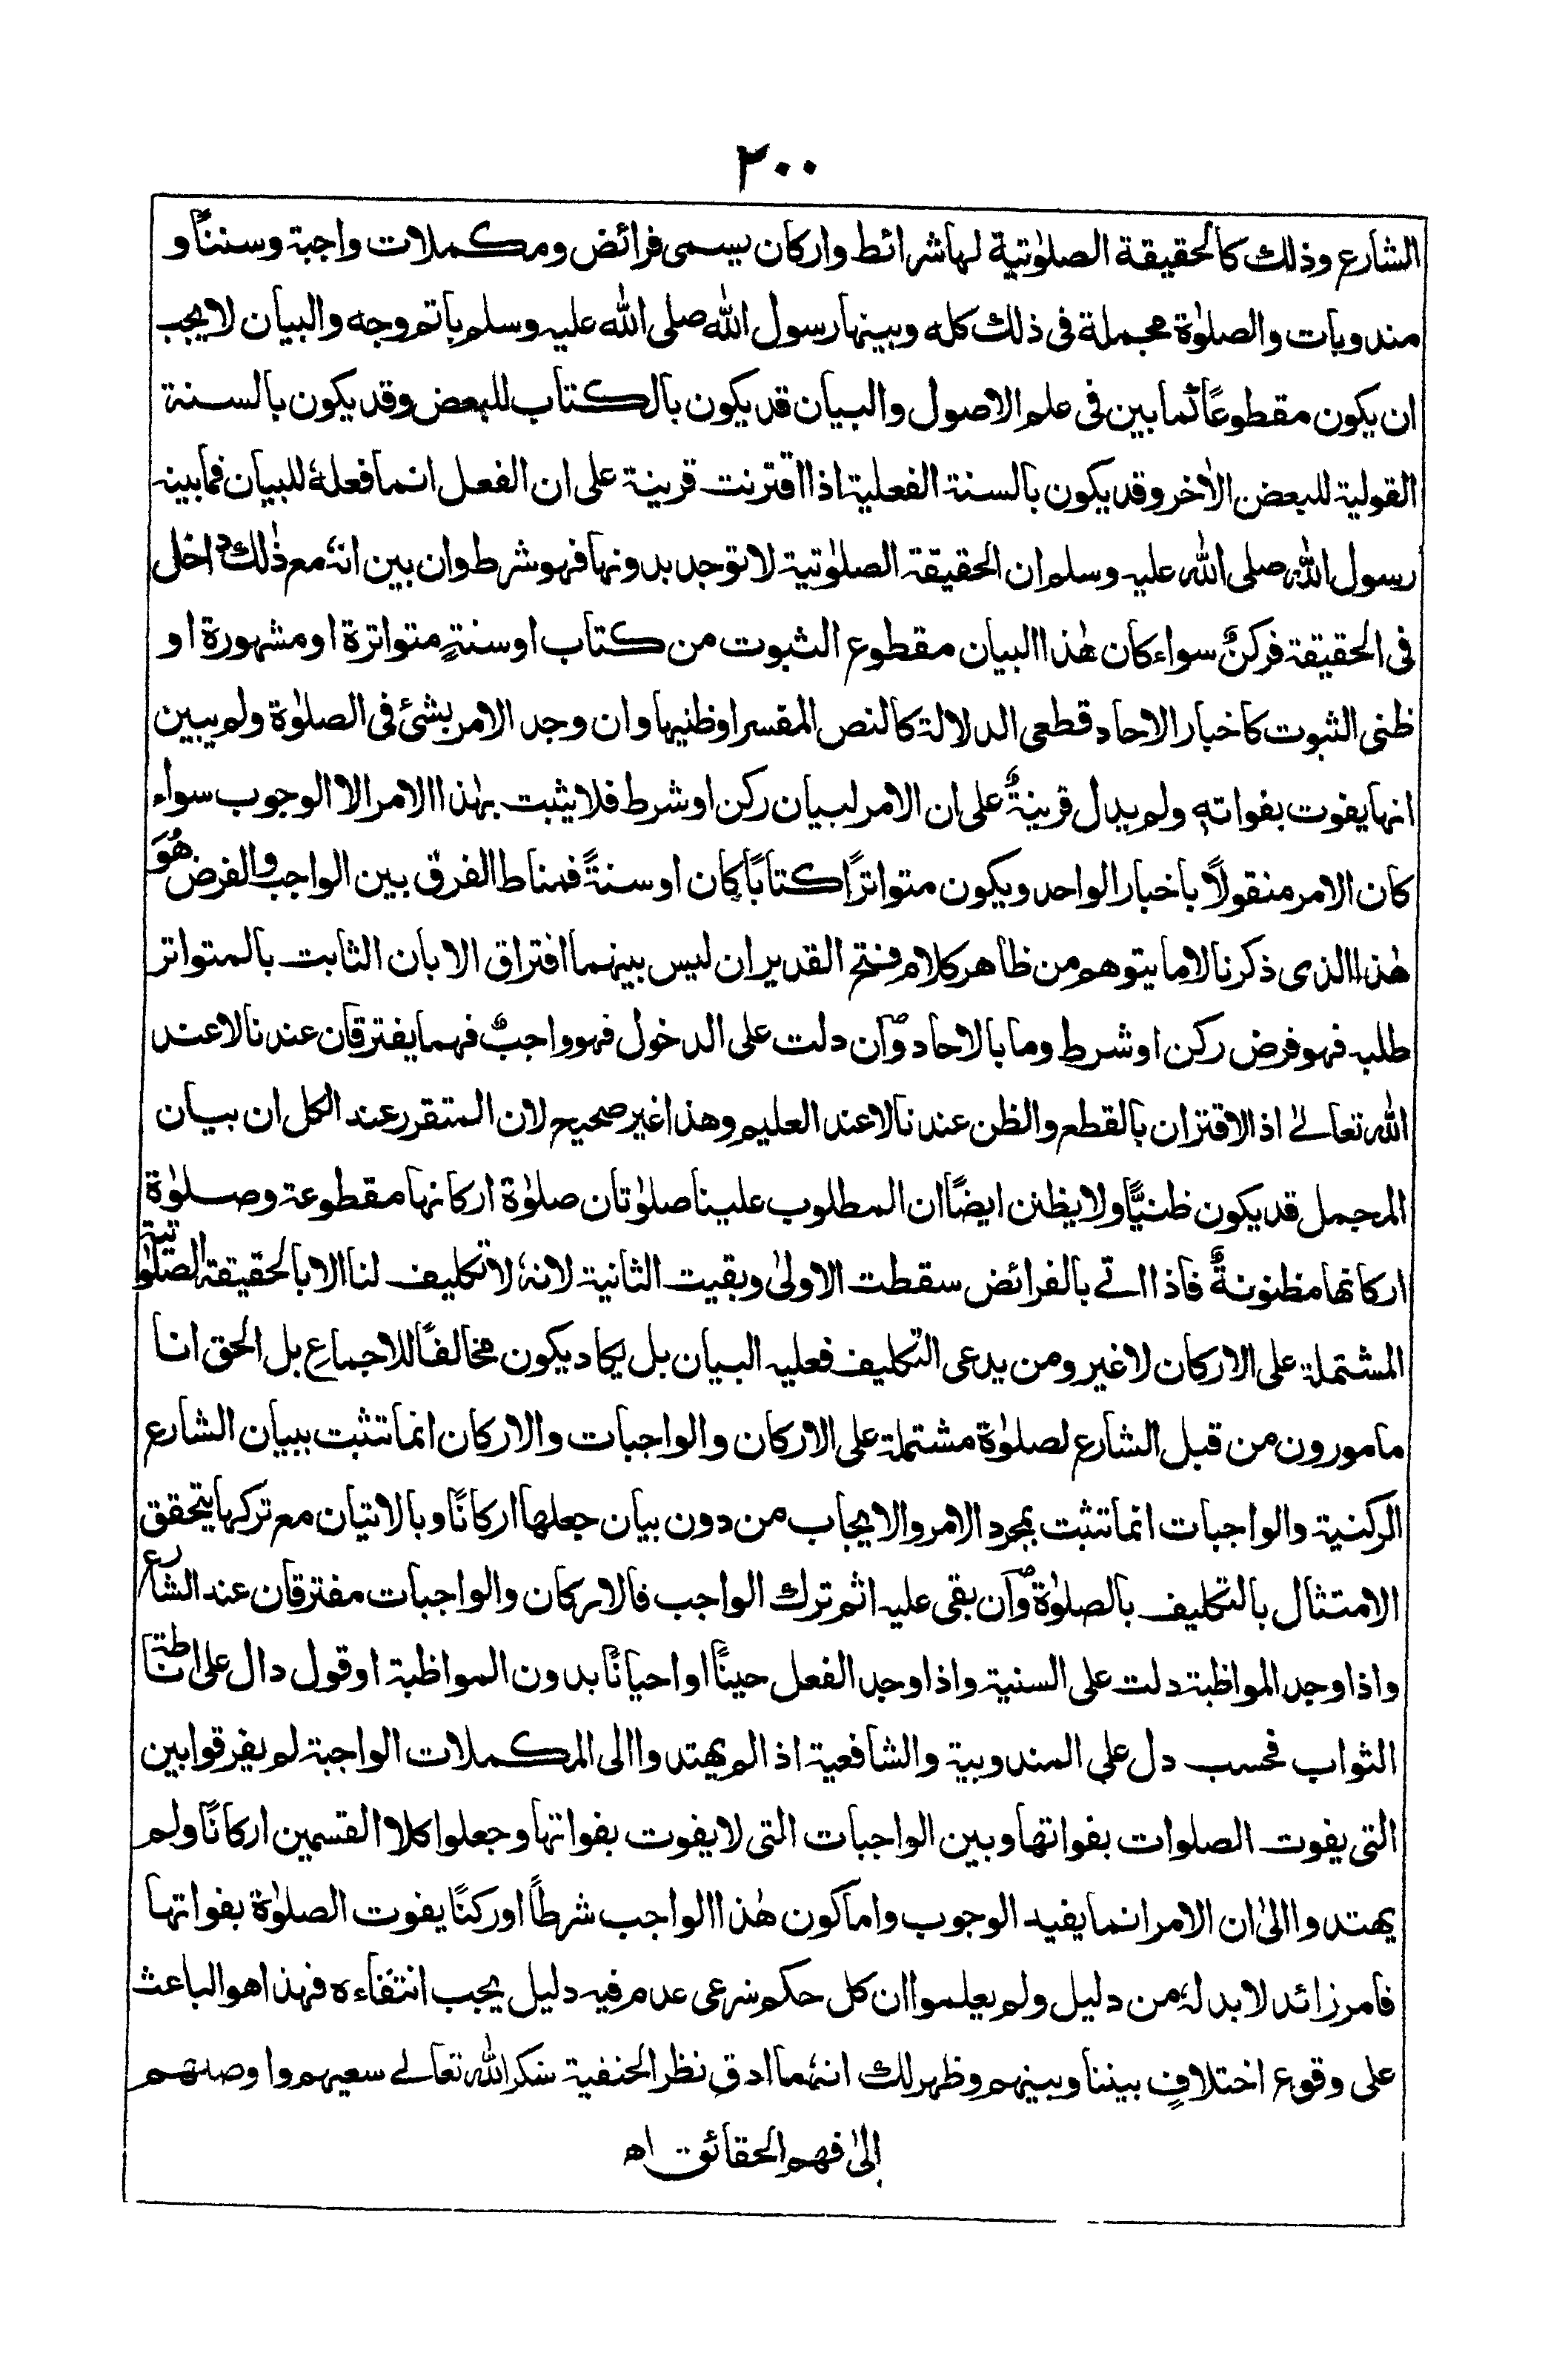 ٢٠٠
الشارع وذلك كالحقيقة الصلوٰتية لها شرائط واركان يسمى فرائض ومكملات واجبة وسننًا و
مندوبات والصلوٰة مجملة فى ذلك كله وبينها رسول الله صلى الله عليه وسلم باتم وجه والبيان لا يجب
ان يكون مقطوعًا كما بين فى علم الاصول والبيان قد يكون بالكتاب للبعض وقد يكون بالسنة
القولية للبعض الاٰخر وقد يكون بالسنة الفعلية اذا اقترنت قرينة على ان الفعل انما فعلهٗ للبيان فما بينه
رسول الله صلى الله عليه وسلم ان الحقيقة الصلوٰتية لا توجد بدونها فهو شرط وان بين انهٗ مع ذٰلك داخل
فى الحقيقة فركنٌ سواء كان هٰذا البيان مقطوع الثبوت من كتاب او سنةٍ متواترة او مشهورة او
ظنى الثبوت كاخبار الاحاد قطعى الدلالة كالنص المفسر اوظنيها وان وجد الامر بشئ فى الصلوٰة ولم يبين
انها يفوت بفواتهٖ ولم يدل قرينةٌ على ان الامر لبيان ركن او شرط فلا يثبت بهٰذا الامر الا الوجوب سواء
كان الامر منقولاً باخبار الواحد ويكون متواترًا كتابًا كان او سنةً فمناط الفرق بين الواجب والفرض هُوَ
هٰذا الذى ذكرنا لا ما يتوهم من ظاهر كلام فتح القدير ان ليس بينهما افتراق الا بان الثابت بالمتواتر
طلبه فهو فرض ركن او شرط وما بالاحاد وان دلت على الدخول فهو واجبٌ فهما يفترقان عندنا لا عند
الله تعالىٰ اذ الاقتران بالقطع والظن عندنا لا عند العليم وهذا غير صحيح لان المتقرر عند الكل ان بيان
المجمل قد يكون ظنيًّا ولا يظنن ايضًا ان المطلوب علينا صلوٰتان صلوٰة اركانها مقطوعة وصلوٰة
اركانها مظنونةٌ فاذا اتے بالفرائض سقطت الاولىٰ وبقيت الثانية لانهٗ لا تكليف لنا الا بالحقيقة الصلوٰتية
المشتملة على الاركان لا غير ومن يدعى التكليف فعليه البيان بل يكاد يكون مخالفًا للاجماع بل الحق انا
مامورون من قبل الشارع لصلوٰة مشتملة على الاركان والواجبات والاركان انما تثبت ببيان الشارع
الركنية والواجبات انما تثبت بمجرد الامر والايجاب من دون بيان جعلها اركانًا وبالاتيان مع تركها يتحقق
الامتثال بالتكليف بالصلوٰة وان بقى عليه اثم ترك الواجب فالاركان والواجبات مفترقان عند الشارع
واذا وجد المواظبة دلت على السنية واذا وجد الفعل حينًا او احيانًا بدون المواظبة او قول دال على اناطة
الثواب فحسب دل على المندوبية والشافعية اذ لم يهتدوا الى المكملات الواجبة لم يفرقوا بين
التى يفوت الصلوات بفواتها وبين الواجبات التى لا يفوت بفواتها وجعلوا كلا القسمين اركانًا ولم
يهتدوا الىٰ ان الامر انما يفيد الوجوب واما كون هٰذا الواجب شرطاً او ركنًا يفوت الصلوٰة بفواتها
فامر زائد لا بد لهٗ من دليل ولم يعلموا ان كل حكم شرعى عدم فيه دليل يجب انتفاءه فهذا هو الباعث
على وقوع اختلافٍ بيننا وبينهم وظهر لك انهٗ ما ادق نظر الحنفية شكر الله تعالے سعيهم واوصلهم
الىٰ فهم الحقائق اھ